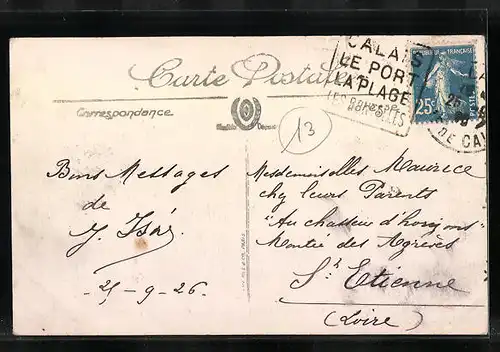 Carte Postale
Correspondance
CALAIS
LE PORT
LA PLAGE
RÉPUBLIQUE FRANÇAISE
25c
DE CA
13
Bons Messages
de
25-9-26.
Mesdemoiselles Maurice
chez leurs Parents
"Au chasseur d'
Montée des
St Etienne
(Loire)